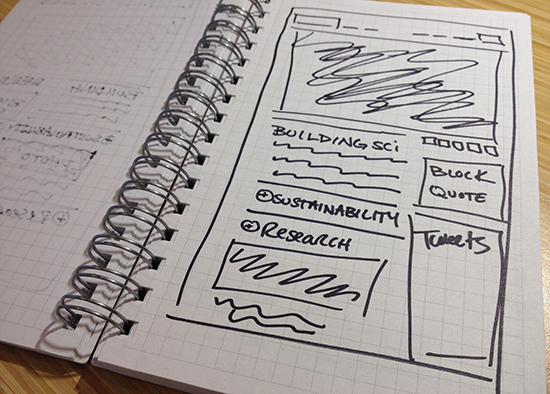 BUILDING SCI
⊕SUSTAINABILITY
⊕RESEARCH
BLOCK
QUOTE
Tweets